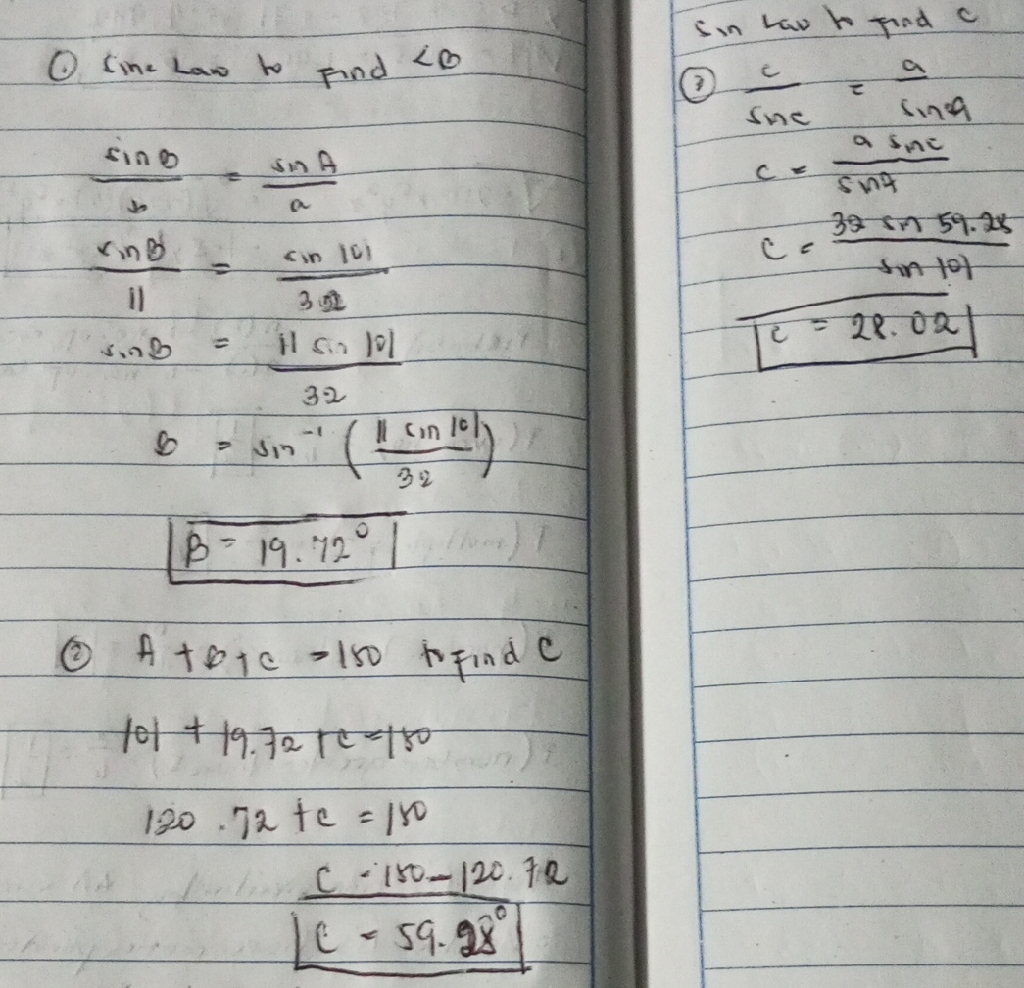 ① Sine Law to find <B
sin B / b = sin A / a
sin B / 11 = sin 101 / 32
sin B = 11 sin 101 / 32
B = sin⁻¹ ( 11 sin 101 / 32 )
B = 19.72°
② A + B + C = 180 to find C
101 + 19.72 + C = 180
120.72 + C = 180
C = 180 - 120.72
C = 59.28°
Sin Law to find c
③ c / sin C = a / sin A
c = a sin C / sin A
c = 32 sin 59.28 / sin 101
c = 28.02